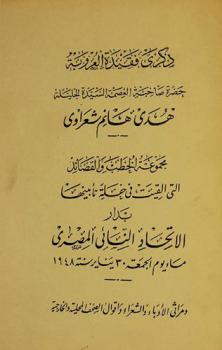 ذكرى فقيدة العروبة
حضرة صاحبة العصمة السيدة الجليلة
هدى هانم شعراوى
مجموعة الخطب والقصائد
التى القيت فى حفلة تأبينها
بدار
الاتحاد النسائى المصرى
مساء يوم الجمعة ٣٠ يناير سنة ١٩٤٨
ومراثى الأدباء والشعراء وأقوال الصحف المحلية والخارجية